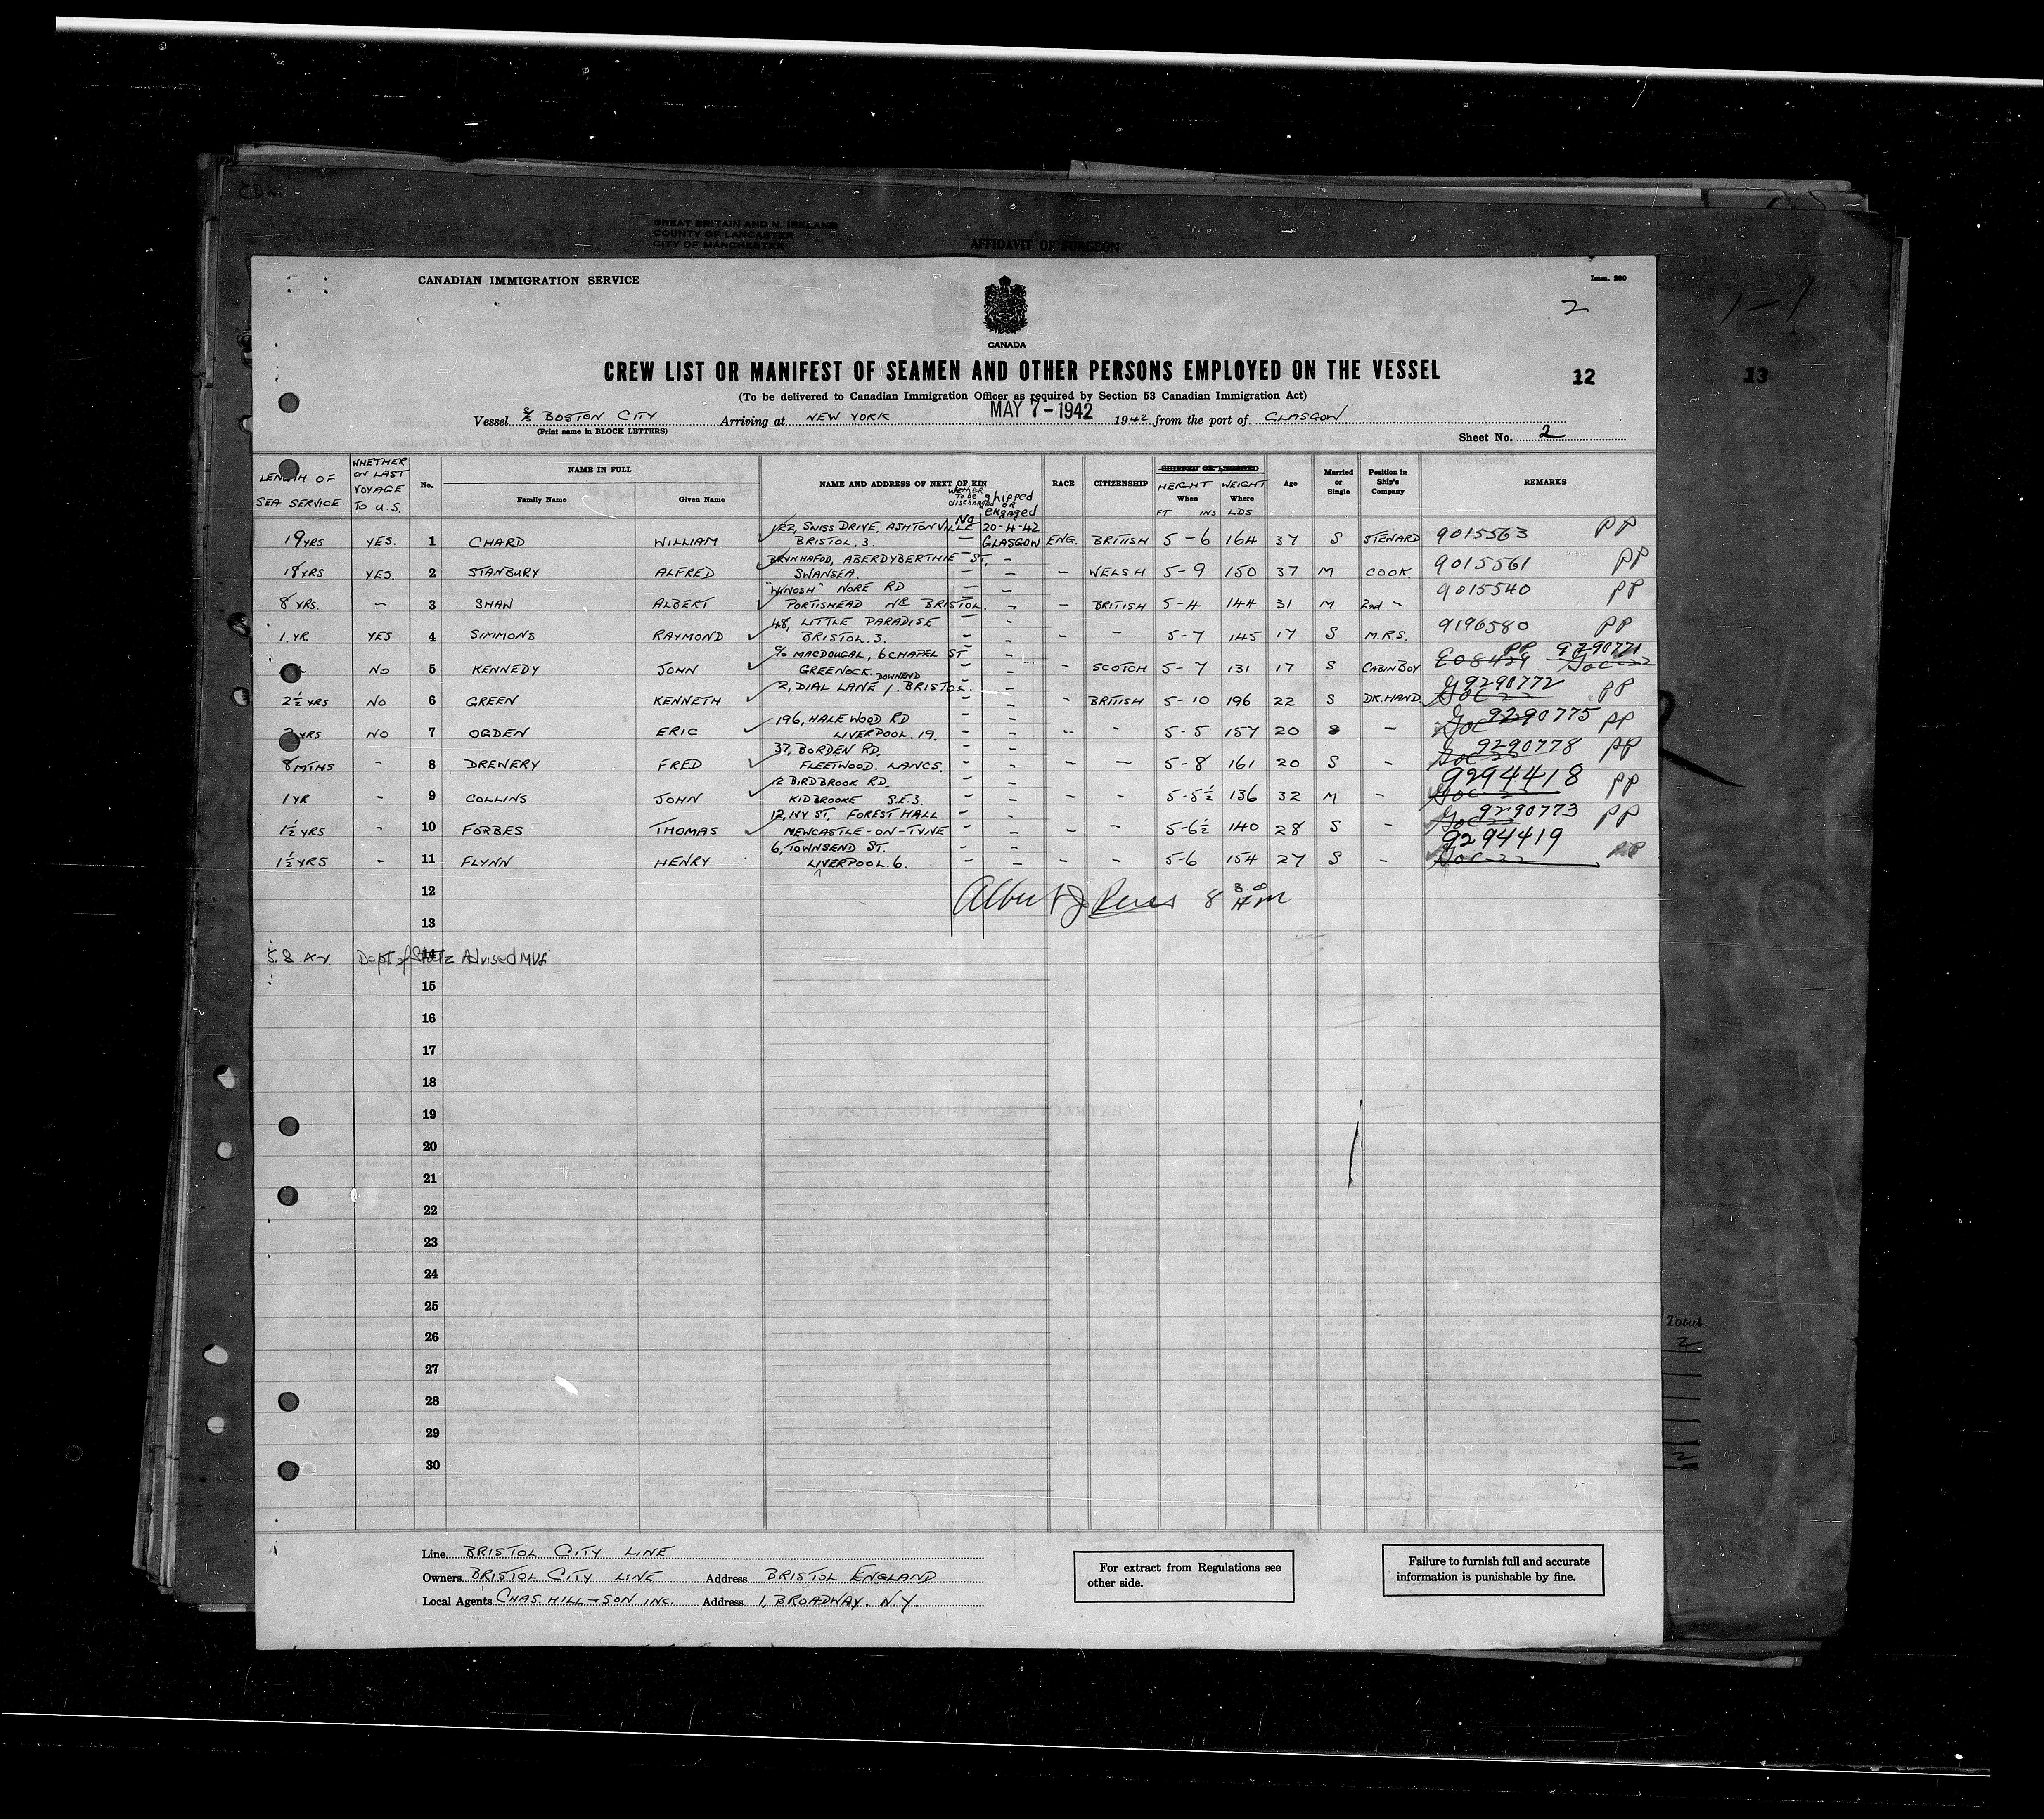 GREAT BRITAIN AND N. IRELAND
COUNTY OF LANCASTER
CITY OF MANCHESTER
AFFIDAVIT OF SURGEON
CANADIAN IMMIGRATION SERVICE
Imm. 200
2
CANADA
CREW LIST OR MANIFEST OF SEAMEN AND OTHER PERSONS EMPLOYED ON THE VESSEL
12
13
(To be delivered to Canadian Immigration Officer as required by Section 53 Canadian Immigration Act)
Vessel S/S BOSTON CITY Arriving at NEW YORK MAY 7-1942 1942 from the port of GLASGOW
(Print name in BLOCK LETTERS)
Sheet No. 2
LENGTH OF SEA SERVICE WHETHER ON LAST VOYAGE TO U.S. No. NAME IN FULL Family Name Given Name NAME AND ADDRESS OF NEXT OF KIN WHETHER TO BE discharged shipped OR engaged RACE CITIZENSHIP SHIPPED OR ENGAGED HEIGHT When FT INS WEIGHT Where LDS Age Married or Single Position in Ship's Company REMARKS
122, SWISS DRIVE, ASHTON VALE No 20-4-42
19 YRS YES. 1 CHARD WILLIAM BRISTOL. 3. — GLASGOW ENG. BRITISH 5-6 164 37 S STEWARD 9015563 PP
BRYNHAFOD, ABERDYBERTHIE ST,
18 YRS YES. 2 STANBURY ALFRED SWANSEA. — — — WELSH 5-9 150 37 M COOK. 9015561 PP
"WINOSH" NORE RD
8 YRS. — 3 SHAW ALBERT PORTISHEAD NR BRISTOL. — — BRITISH 5-4 144 31 M 2nd - 9015540 PP
48, LITTLE PARADISE
1. YR YES 4 SIMMONS RAYMOND BRISTOL. 3. — — — - 5-7 145 17 S M.R.S. 9196580 PP
C/O MACDOUGAL, 6 CHAPEL ST
NO 5 KENNEDY JOHN GREENOCK. — — - SCOTCH 5-7 131 17 S CABIN BOY PP 9290771
DOWNEND
2, DIAL LANE, BRISTOL.
2½ YRS NO 6 GREEN KENNETH — BRITISH 5-10 196 22 S DK. HAND 9290772 PP
196, HALEWOOD RD
YRS NO 7 OGDEN ERIC LIVERPOOL. 19. - - - - 5-5 157 20 S — 9290775 PP
37, BORDEN RD.
8 MTHS - 8 DREWERY FRED FLEETWOOD. LANCS. - - - - 5-8 161 20 S - 9290778 PP
12 BIRDBROOK RD.
1 YR - 9 COLLINS JOHN KIDBROOKE S.E.3. - - - - 5-5½ 136 32 M - 9294418 PP
12, IVY ST, FOREST HALL
1½ YRS - 10 FORBES THOMAS NEWCASTLE-ON-TYNE - - - - 5-6½ 140 28 S - 9290773 PP
6, TOWNSEND ST.
1½ YRS - 11 FLYNN HENRY LIVERPOOL. 6. - - - - 5-6 154 27 S - 9294419 PP
12
13
14 Dept of State Advised
15
16
17
18
19
20
21
22
23
24
25
26
27
28
29
30
Total
2
2
Line BRISTOL CITY LINE
Owners BRISTOL CITY LINE Address BRISTOL ENGLAND
Local Agents CHAS. HILL & SON INC. Address 1, BROADWAY. N.Y.
For extract from Regulations see other side.
Failure to furnish full and accurate information is punishable by fine.